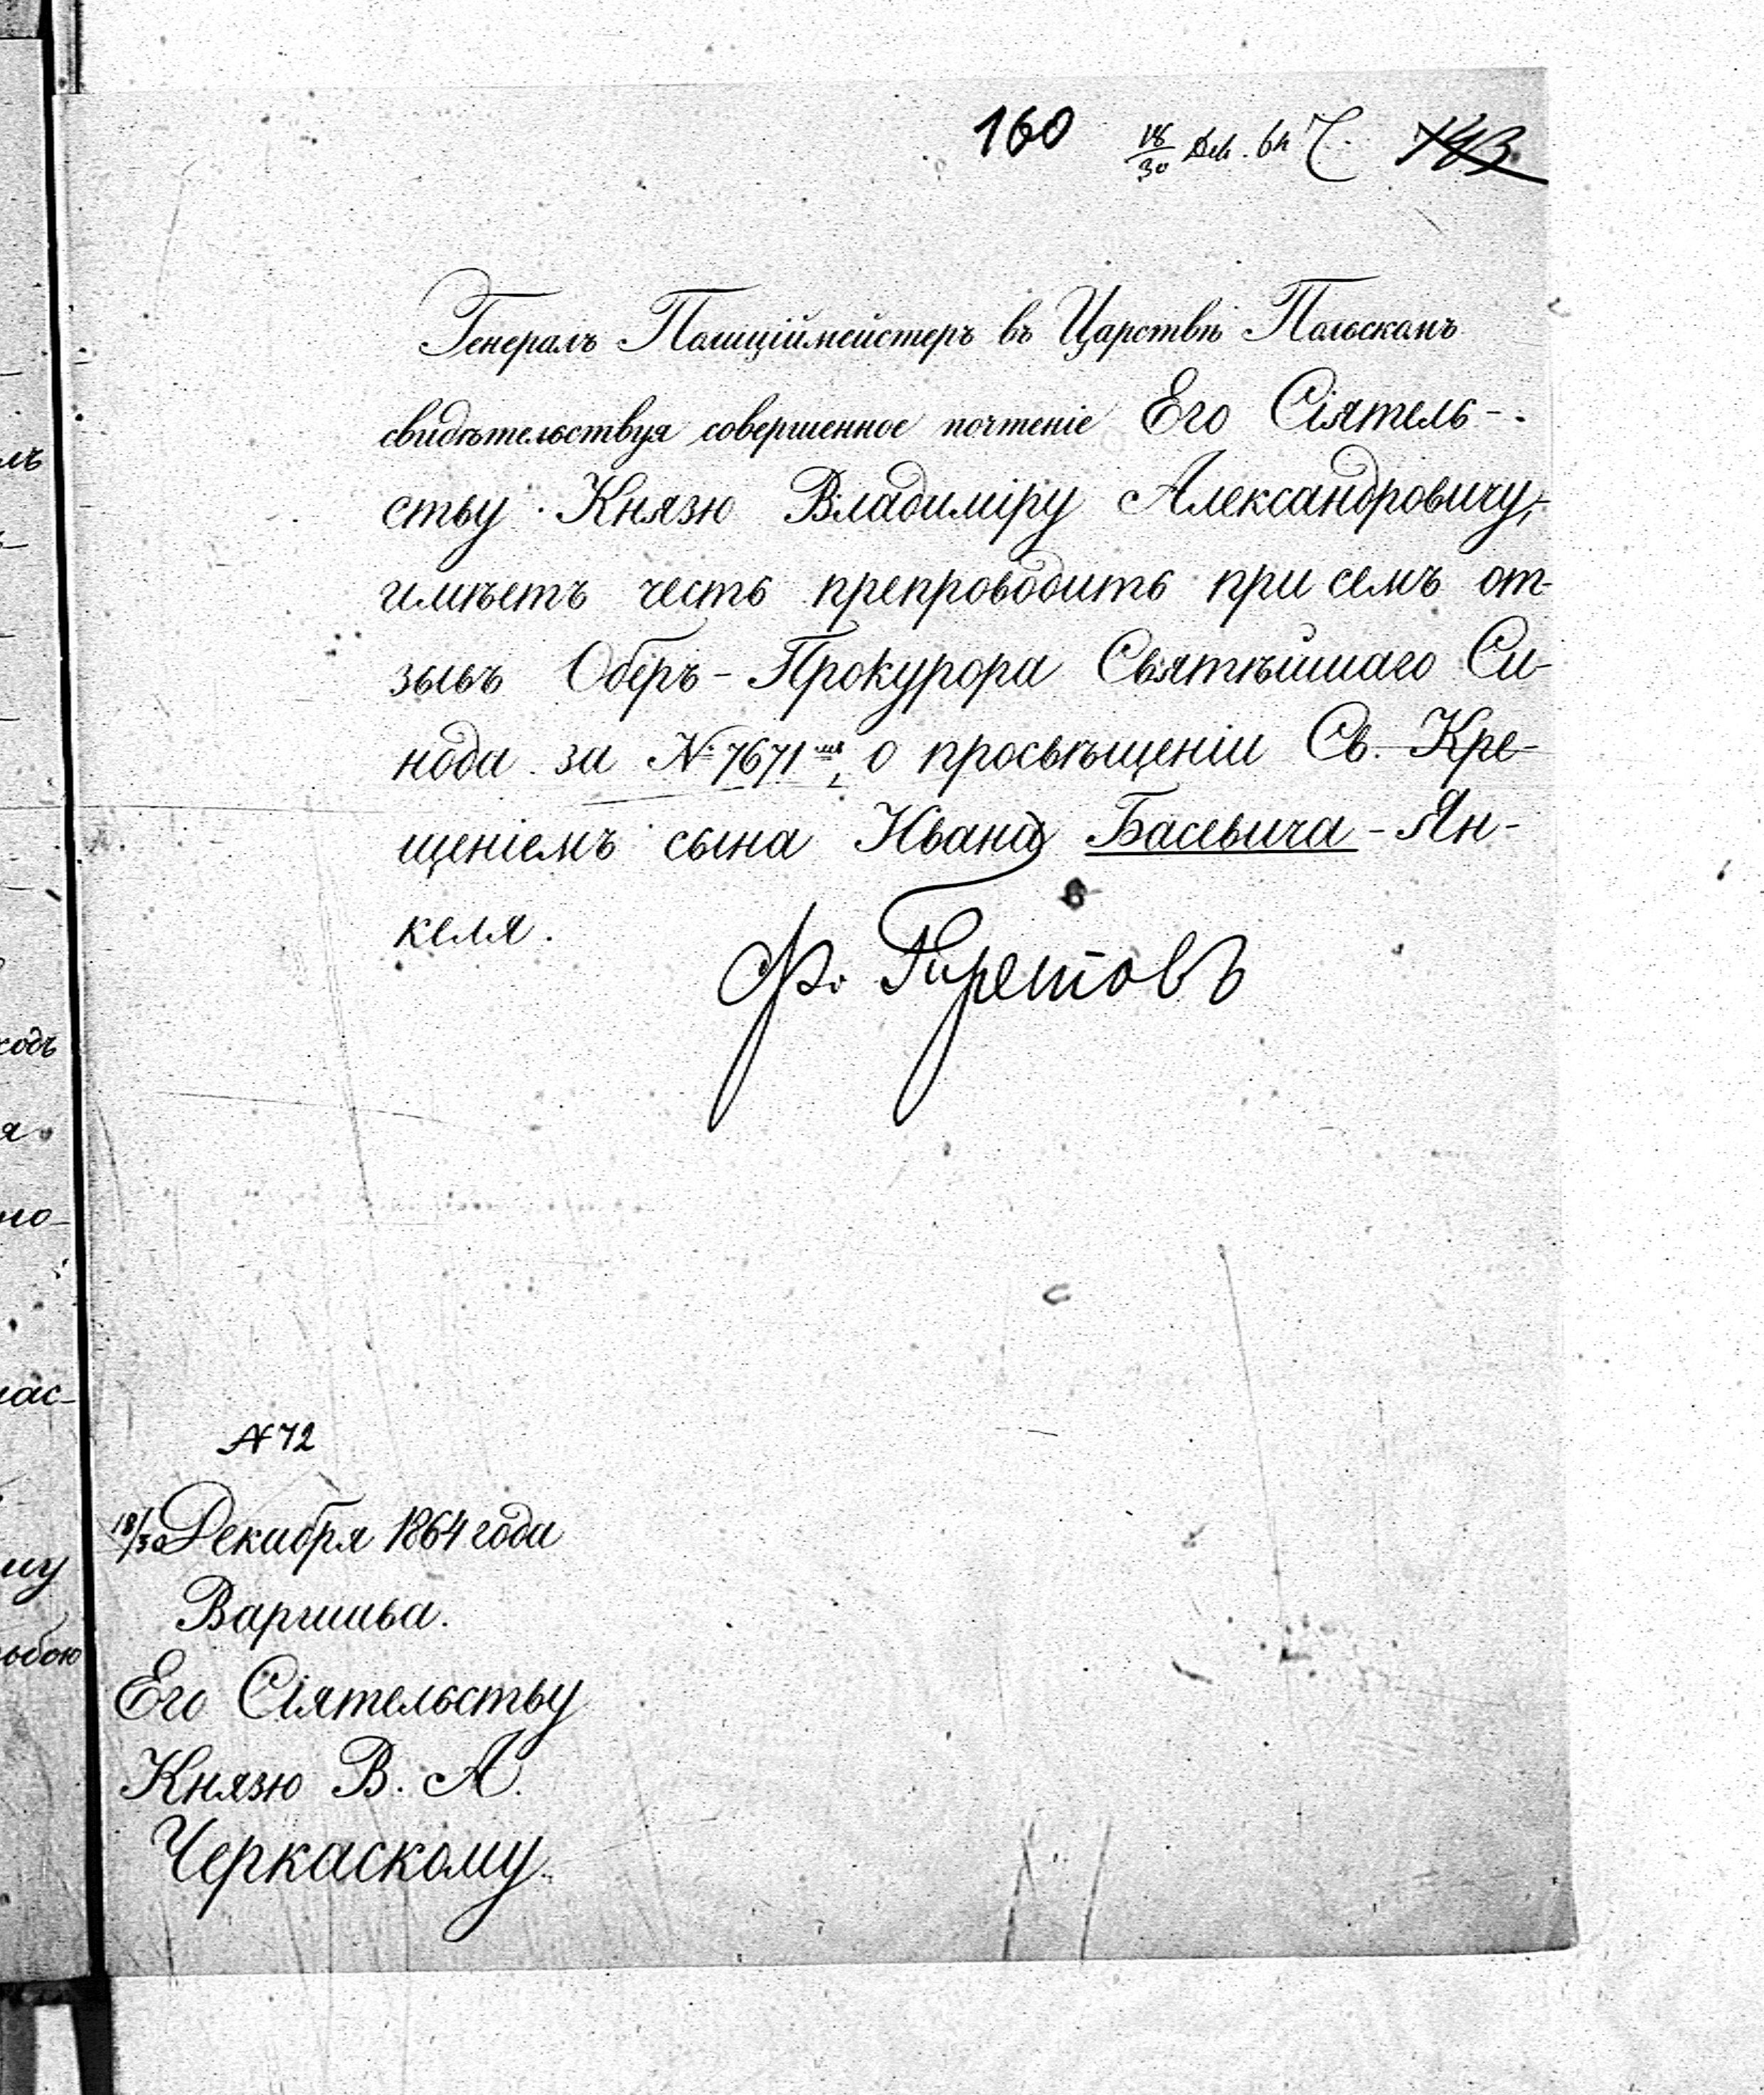 160 18/30 Дек. 64 Ч. 143
Генералъ Полиціймейстеръ въ Царствѣ Польскомъ
свидѣтельствуя совершенное почтеніе Его Сіятель-
ству Князю Владиміру Александровичу,
имѣетъ честь препроводить при семъ от-
зывъ Оберъ-Прокурора Святѣйшаго Си-
нода за № 7671мъ, о просвѣщеніи Св. Кре-
щеніемъ сына Ивана Басевича-Ян-
келя.
Ѳ.
№ 72
18/30 Декабря 1864 года
Варшава.
Его Сіятельству
Князю В. А.
Черкаскому.